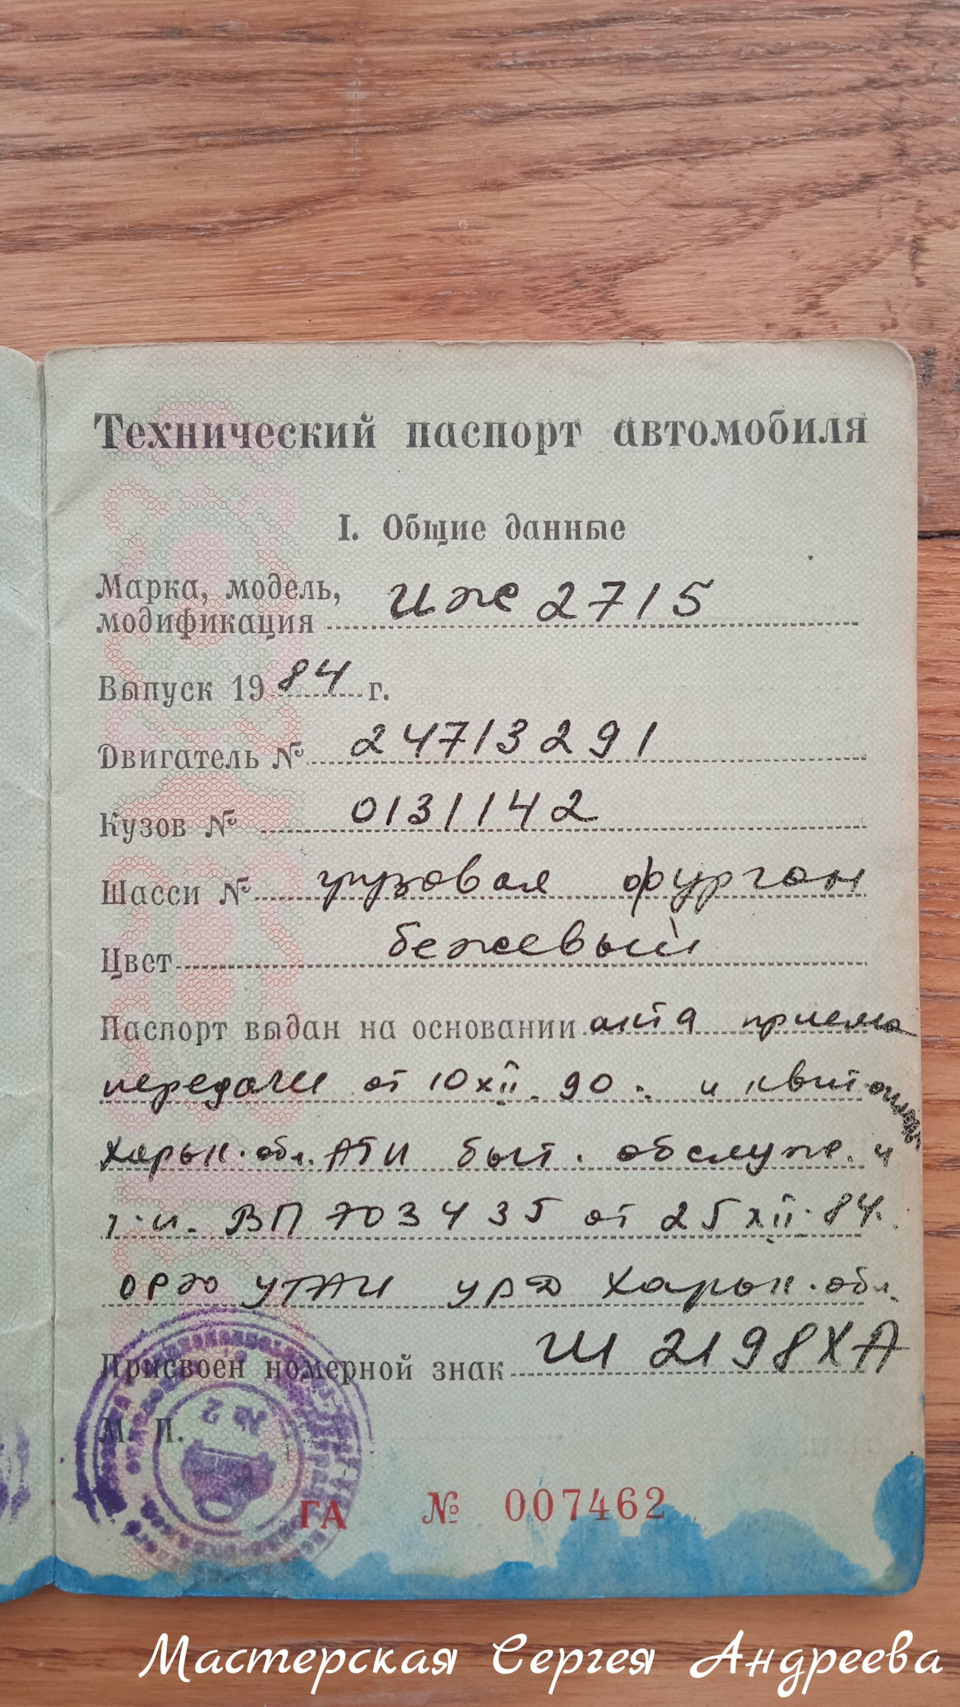 Технический паспорт автомобиля
I. Общие данные
Марка, модель,
модификация Иж 2715
Выпуск 19 84 г.
Двигатель № 24713291
Кузов № 0131142
Шасси № грузовая фургон
Цвет бежевый
Паспорт выдан на основании акта приема
передачи от 10 XII. 90. и квитанции
Харьк. обл. АТИ быт. обслуж. и
т.и. ВП 703435 от 25 XII. 84.
УТАИ Харьк. обл.
Присвоен номерной знак Ш 2198ХА
М. П.
№ 2
ГА № 007462
Мастерская Сергея Андреева